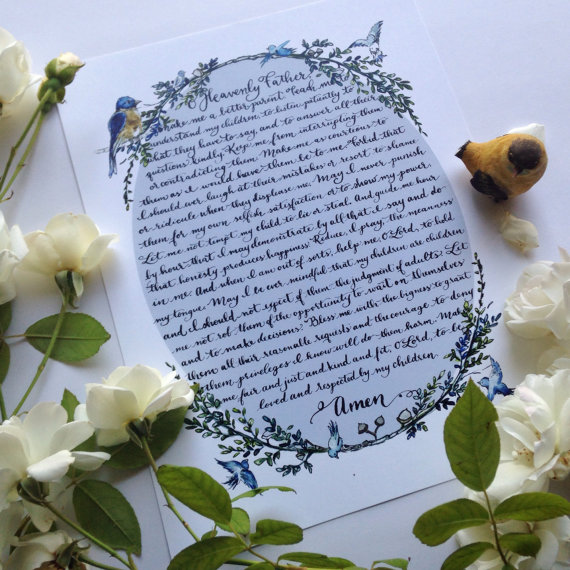 Heavenly Father,
make me a better parent. Teach me to
understand my children to listen patiently to
what they have to say, and to answer all their
questions kindly. Keep me from interrupting them
or contradicting them. Make me as courteous to
them as I would have them be to me. Forbid that
I should ever laugh at their mistakes or resort to shame
or ridicule when they displease me. May I never punish
them for my own selfish satisfaction or to show my power.
Let me not tempt my child to lie or steal. And guide me hour
by hour that I may demonstrate by all that I say and do
that honesty produces happiness. Reduce, I pray, the meanness
in me. And when I am out of sorts, help me, O Lord, to hold
my tongue. May I be ever mindful that my children are children
and I should not expect of them the judgment of adults. Let
me not rob them of the opportunity to wait on themselves
and to make decisions. Bless me with the bigness to grant
them all their reasonable requests and the courage to deny
them priveleges I know will do them harm. Make
me fair and just and kind and fit, O Lord, to be
loved and respected by my children.
Amen